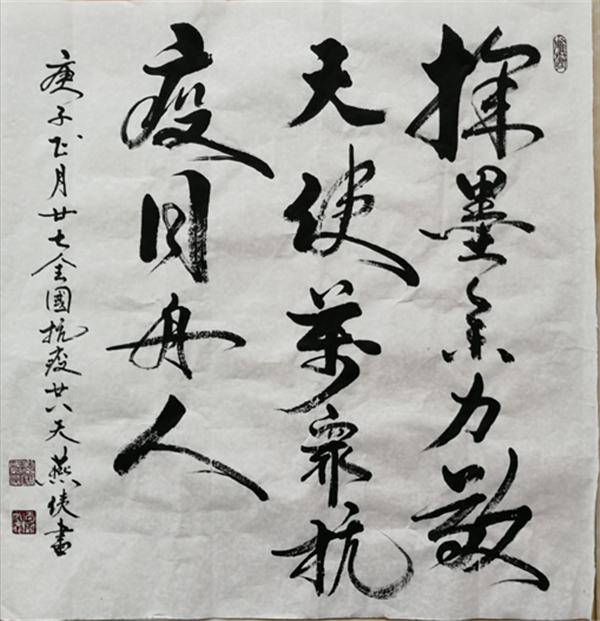 揮墨力敬
天使萬眾抗
疫同舟人
庚子正月廿七全國抗疫廿八天燕侠書